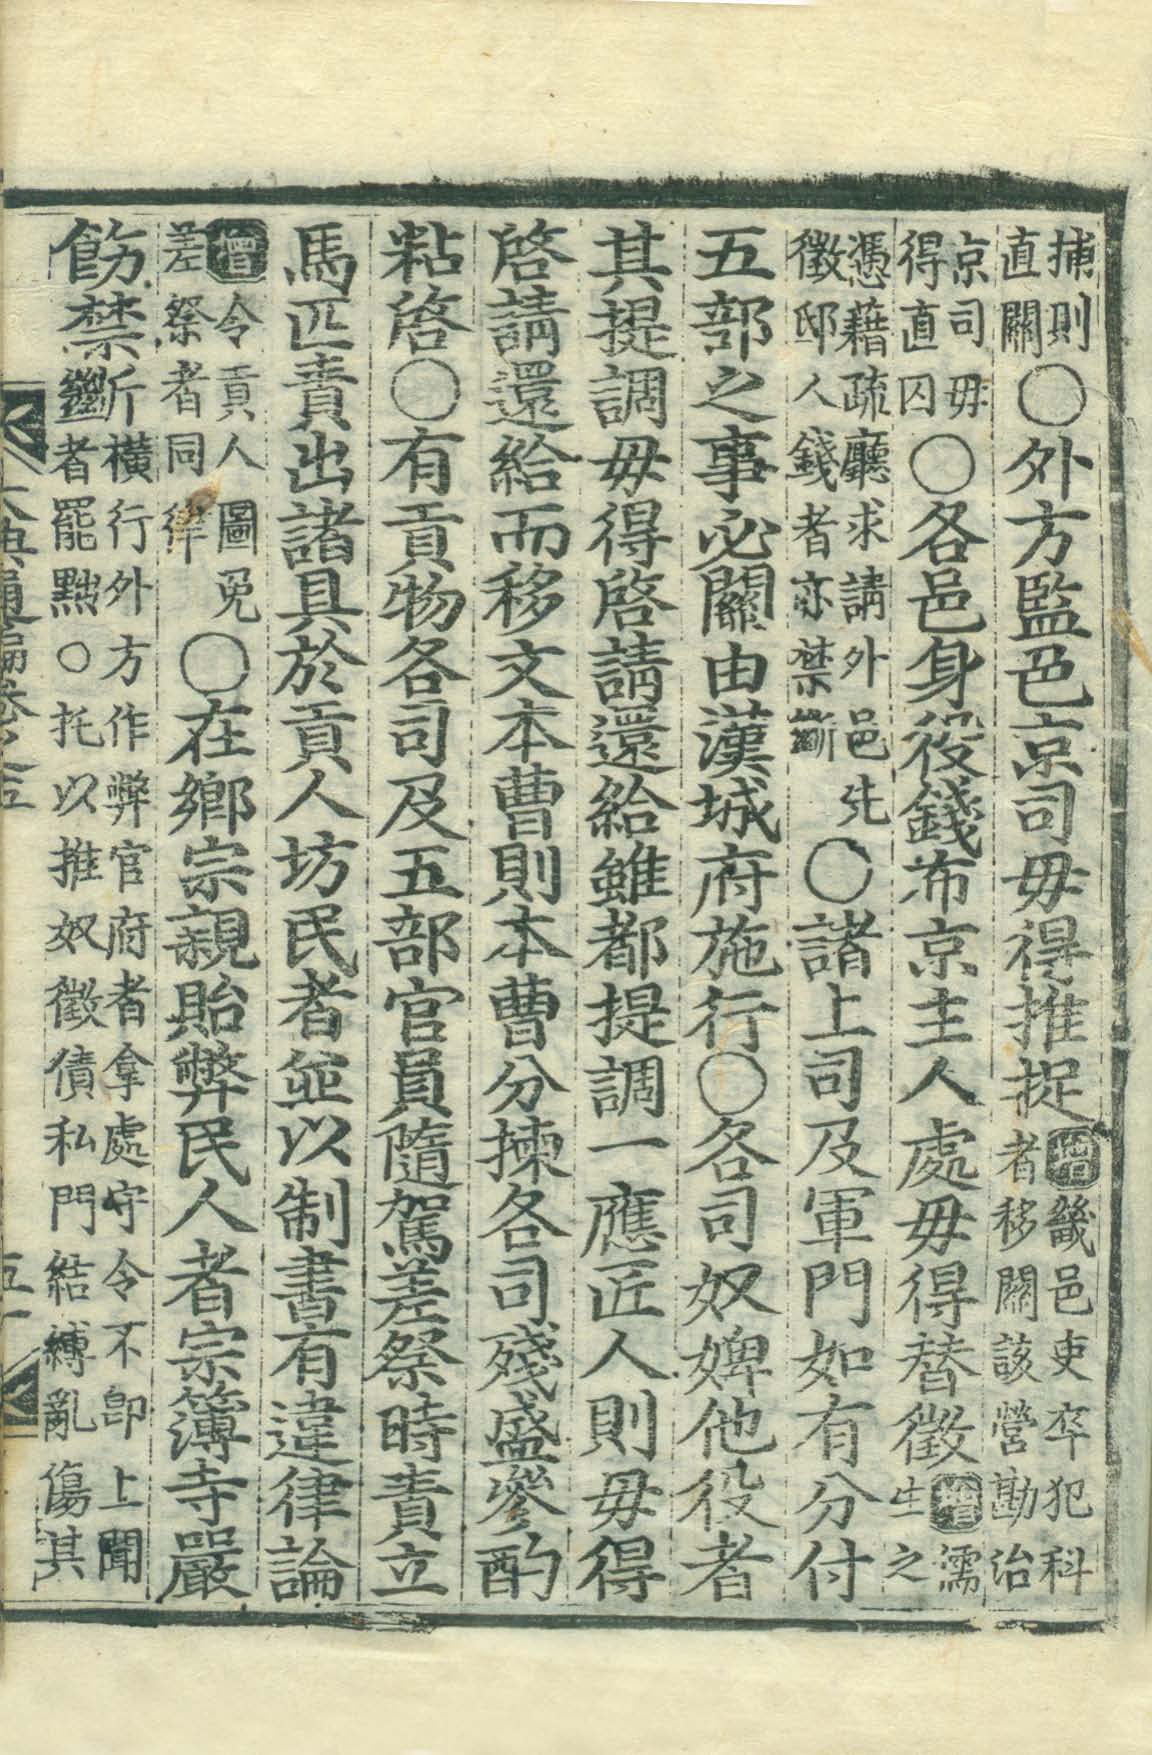 捕則直關○外方監邑京司毋得推捉增畿邑吏卒犯科者移關該營勘治
京司毋得直囚○各邑身役錢布京主人處毋得替徵增儒生之
憑藉疏廳求請外邑先徵邸人錢者亦禁斷○諸上司及軍門如有分付
五部之事必關由漢城府施行○各司奴婢他役者
其提調毋得啓請還給雖都提調一應匠人則毋得
啓請還給而移文本曹則本曹分揀各司殘盛參酌
粘啓○有貢物各司及五部官員隨駕差祭時責立
馬匹責出諸具於貢人坊民者並以制書有違律論
增令貢人圖免差祭者同律○在鄕宗親貽弊民人者宗簿寺嚴
飭禁斷橫行外方作弊官府者拿處守令不卽上聞者罷黜○托以推奴徵債私門結縛亂傷其
大典通編卷之五